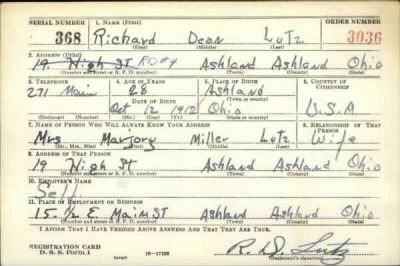 SERIAL NUMBER 1. NAME (Print) ORDER NUMBER
368 Richard Dean Lutz 3036
(First) (Middle) (Last)
2. ADDRESS (Print)
19 High ST RD#4 Ashland Ashland Ohio
(Number and street or R. F. D. number) (Town) (County) (State)
3. TELEPHONE 4. AGE IN YEARS 5. PLACE OF BIRTH 6. COUNTRY OF CITIZENSHIP
271 Main 28 Ashland
DATE OF BIRTH (Town or county)
Oct 12 1912 Ohio U.S.A
(Exchange) (Number) (Mo.) (Day) (Yr.) (State or country)
7. NAME OF PERSON WHO WILL ALWAYS KNOW YOUR ADDRESS 8. RELATIONSHIP OF THAT PERSON
Mrs Marjory Miller Lutz Wife
(Mr., Mrs., Miss) (First) (Middle) (Last)
9. ADDRESS OF THAT PERSON
19 High St Ashland Ashland Ohio
(Number and street or R. F. D. number) (Town) (County) (State)
10. EMPLOYER'S NAME
Self
11. PLACE OF EMPLOYMENT OR BUSINESS
15 1/2 E. Main ST Ashland Ashland Ohio
(Number and street or R. F. D. number) (Town) (County) (State)
I AFFIRM THAT I HAVE VERIFIED ABOVE ANSWERS AND THAT THEY ARE TRUE.
REGISTRATION CARD
D. S. S. Form 1 (over) R. D. Lutz